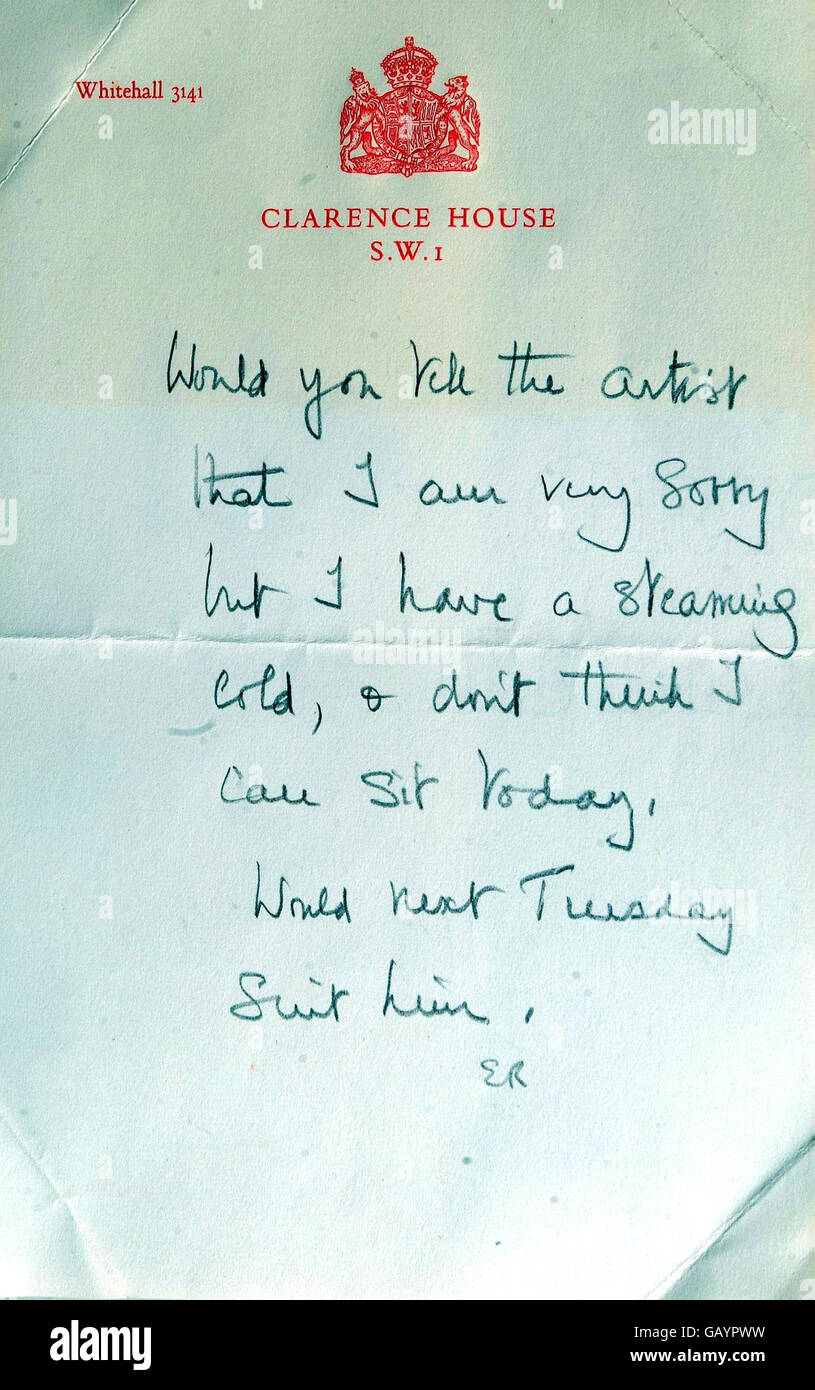 Whitehall 3141
CLARENCE HOUSE
S.W.1
Would you tell the artist
that I am very sorry
but I have a steaming
cold, & don't think I
can sit today.
Would next Tuesday
suit him.
ER
a alamy
a
alamy
a
alamy
Image ID: GAYPWW
www.alamy.com